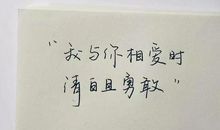 “我与你相爱时
清白且勇敢”